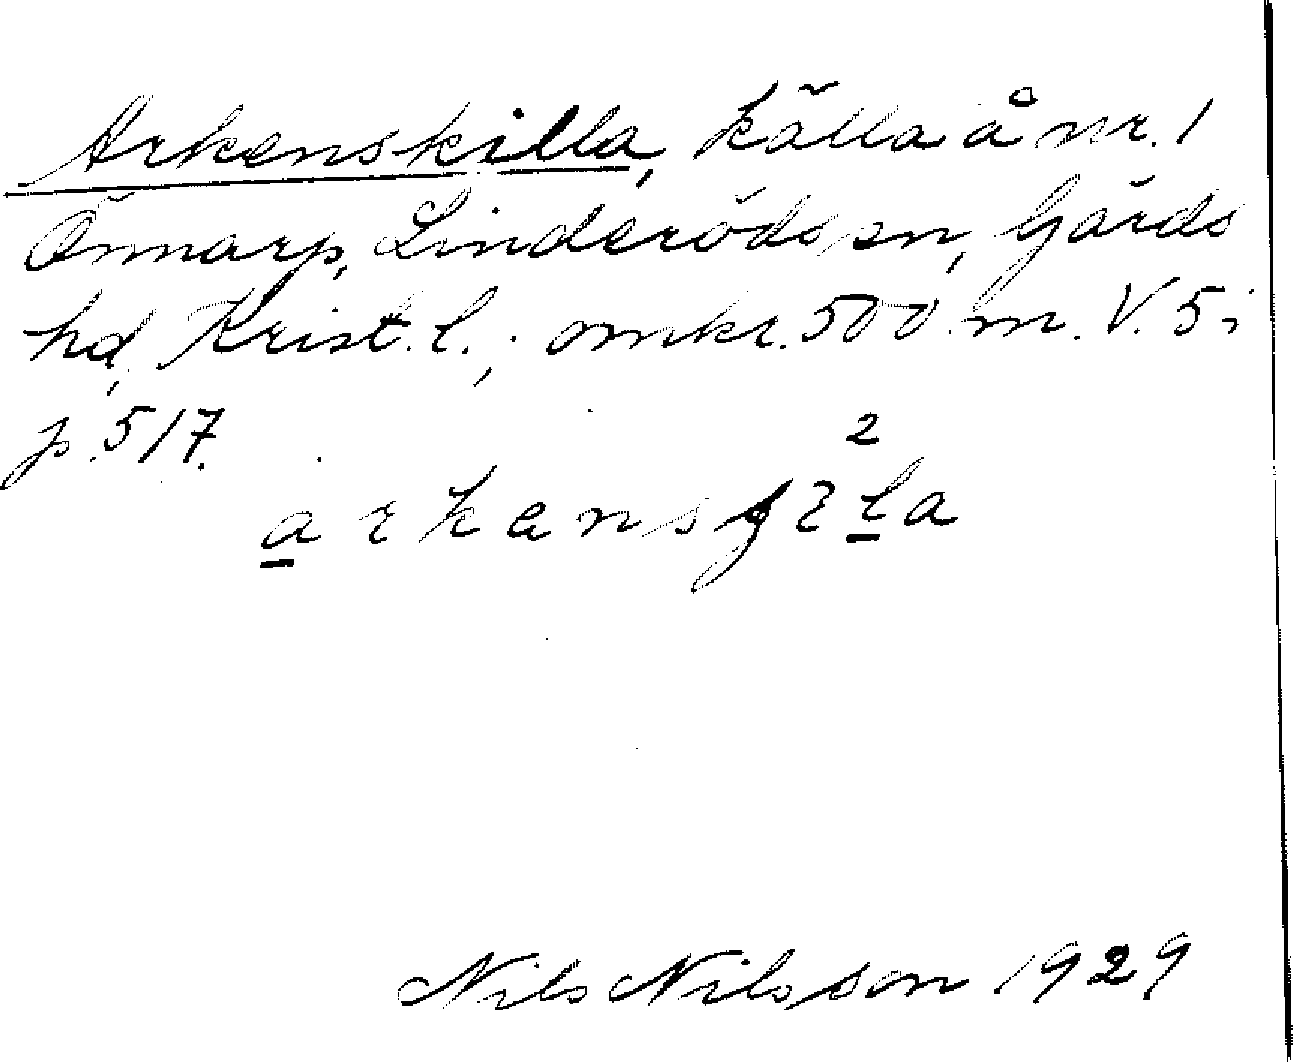 Arkenskilla, källa å nr. 1
Önnarp, Linderöds sn, Gärds
hd, Krist. l., omkr. 500 m. V. 5 i
p. 517.
2
Nils Nilsson 1929